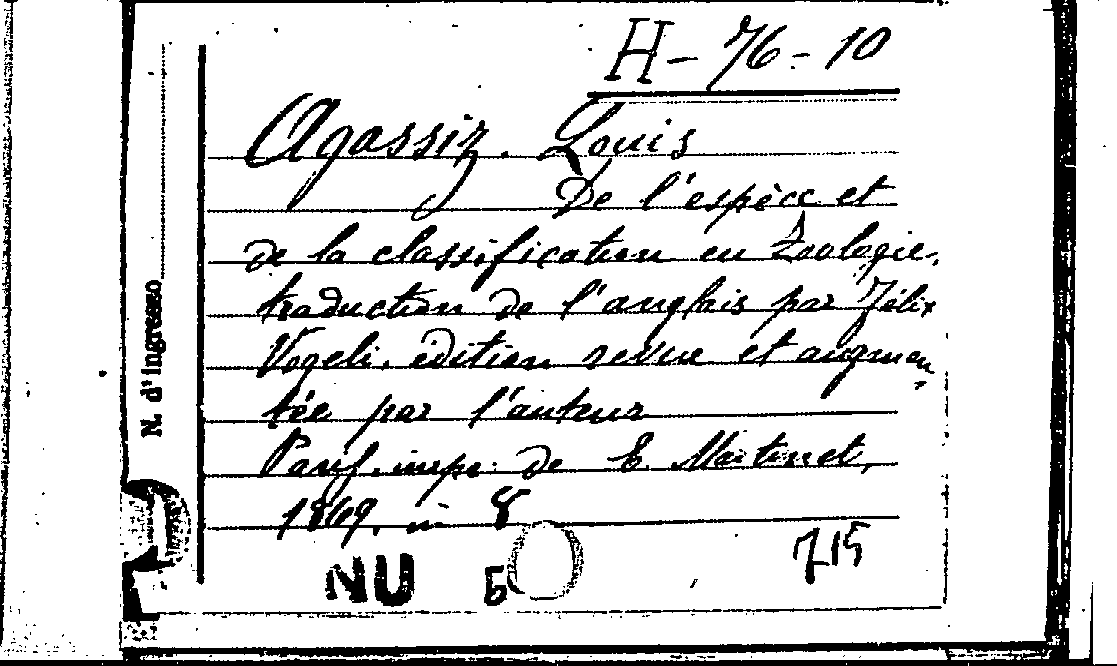 H-76-10
Agassiz. Louis
De l'espèce et
de la classification en Zoologie,
traduction de l'anglais par Félix
Vogeli. edition revue et augmen-
tée par l'auteur
Paris. impr. de E. Martinet,
1869. in 8
NU
715
N. d'ingresso